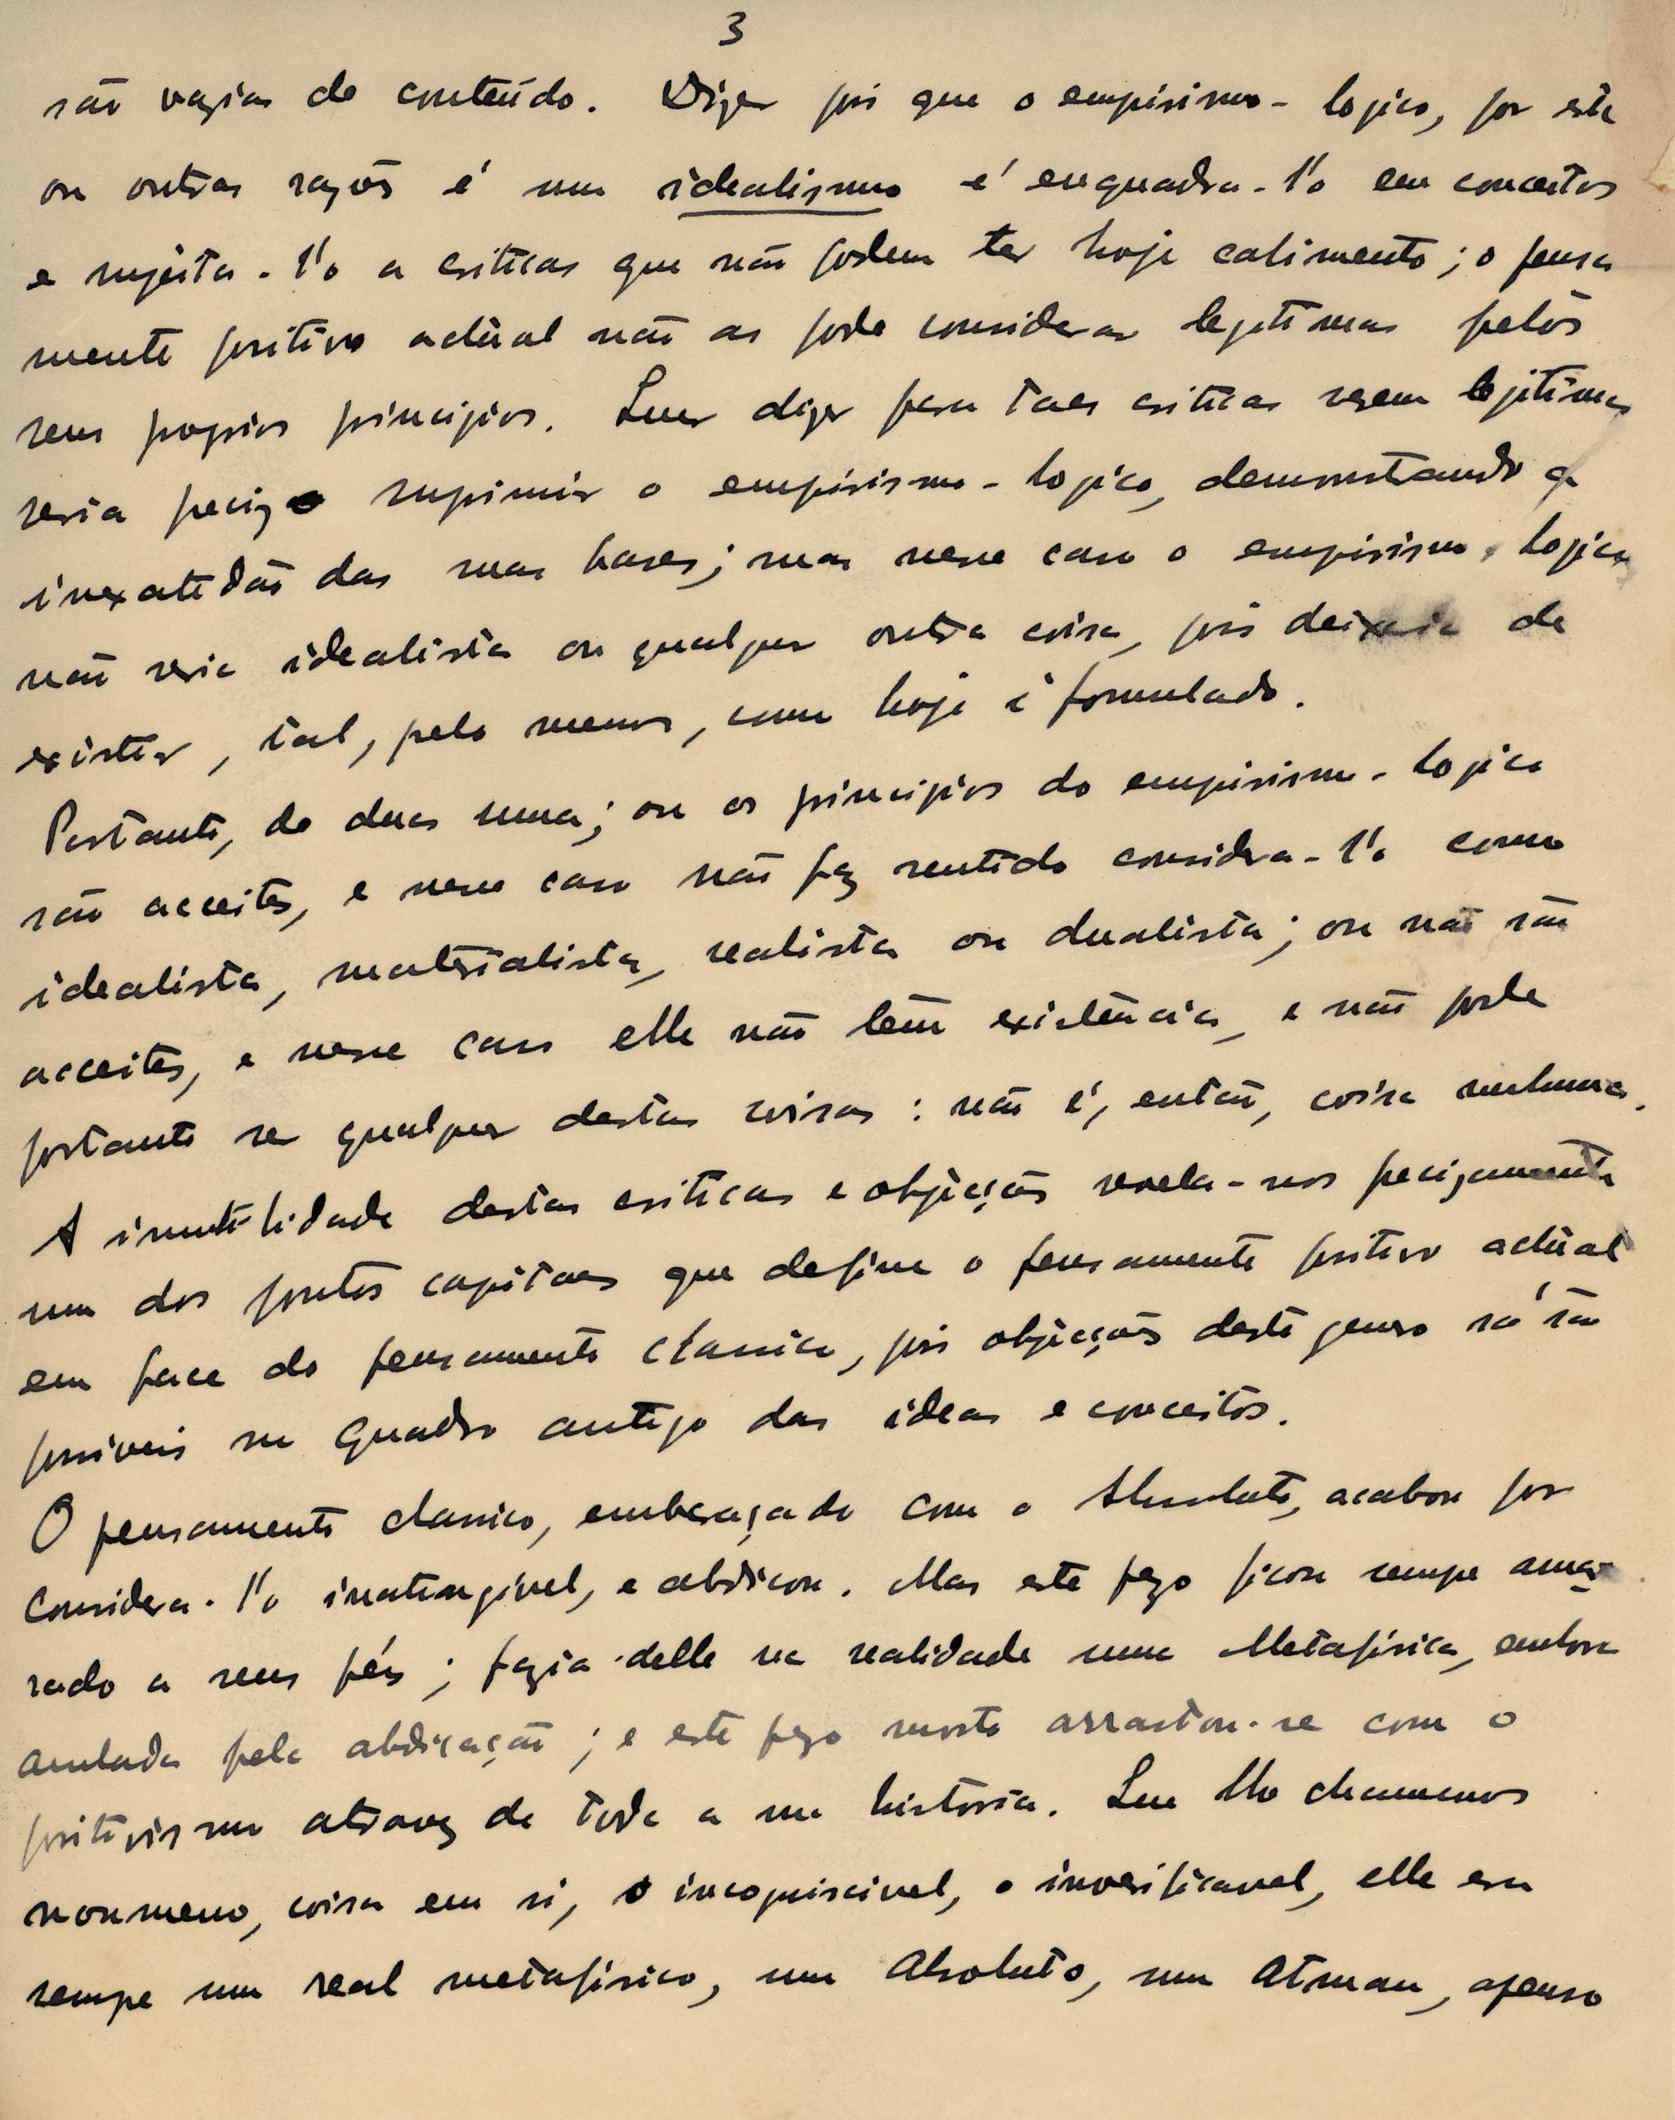 3
são vazias de conteúdo. Dizer pois que o empirismo-logico, por esta
ou outras razões é um idealismo é enquadra-l'o em conceitos
e sujeita-l'o a criticas que não podem ter hoje cabimento; o pensa
mento positivo actual não as pode considerar legitimas pelos
seus proprios principios. Quer dizer para taes criticas serem legitimas
seria precizo suprimir o empirismo-logico, demonstrando a
inexatidão das suas bases; mas nesse caso o empirismo-logico
não seria idealista ou qualquer outra coisa, pois deixaria de
existir, tal, pelo menos, como hoje é formulado.
Portanto, de duas uma; ou os principios do empirismo-logico
são acceites, e nesse caso não faz sentido considera-l'o como
idealista, materialista, realista ou dualista; ou não são
acceites, e nesse caso elle não tem existência, e não pode
portanto ser qualquer destas coisas: não é, então, coisa nenhuma.
A inutilidade destas criticas e objecções revela-nos precizamente
um dos pontos capitaes que define o pensamento positivo actual
em face do pensamento classico, pois objecções deste genero só são
possiveis no quadro antigo das ideas e conceitos.
O pensamento classico, embaraçado com o Absoluto, acabou por
considera-l'o inatingivel, e abdicou. Mas este pezo ficou sempre amar
rado a seus pés; fazia delle na realidade uma Metafisica, embora
anulada pela abdicação; e este pezo morto arrastou-se com o
positivismo atravez de toda a sua historia. Quer lhe chamemos
noumeno, coisa em si, o incognoscivel, o inverificavel, elle era
sempre um real metafisico, um Absoluto, um Atman, apenso